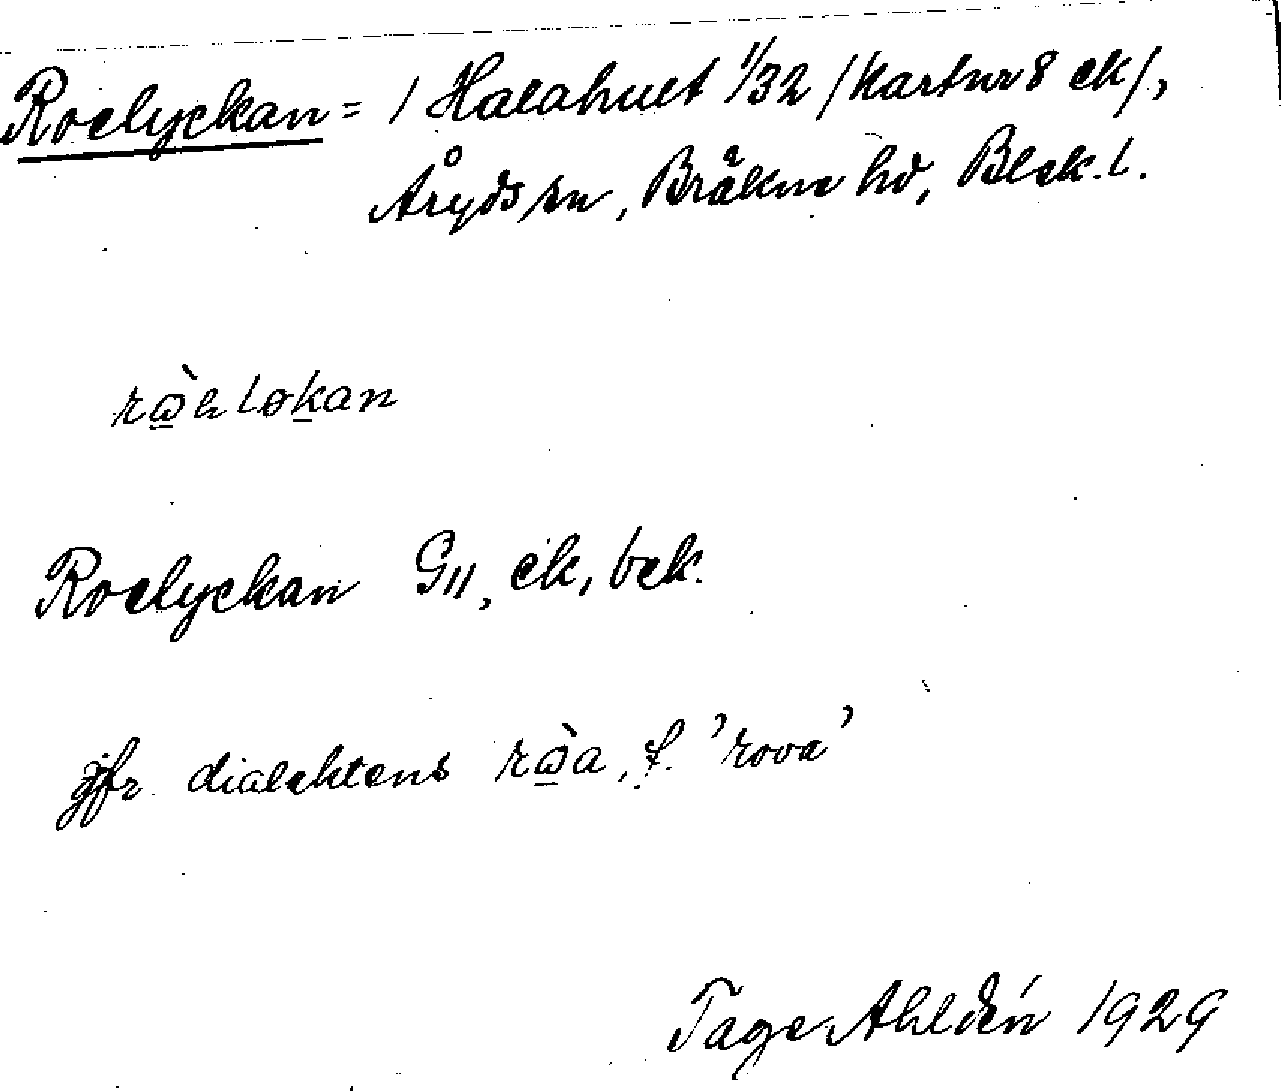 Roelyckan = / Halahult 1/32 /kartnr 8 ek/,
Åryds sn, Bräkne hd, Blek. l.
rὼ̠ɛløk̠an
Roelyckan G11, ek, bek.
jfr dialektens rὼ̠a, f. 'rova'
Tage Ahldén 1929